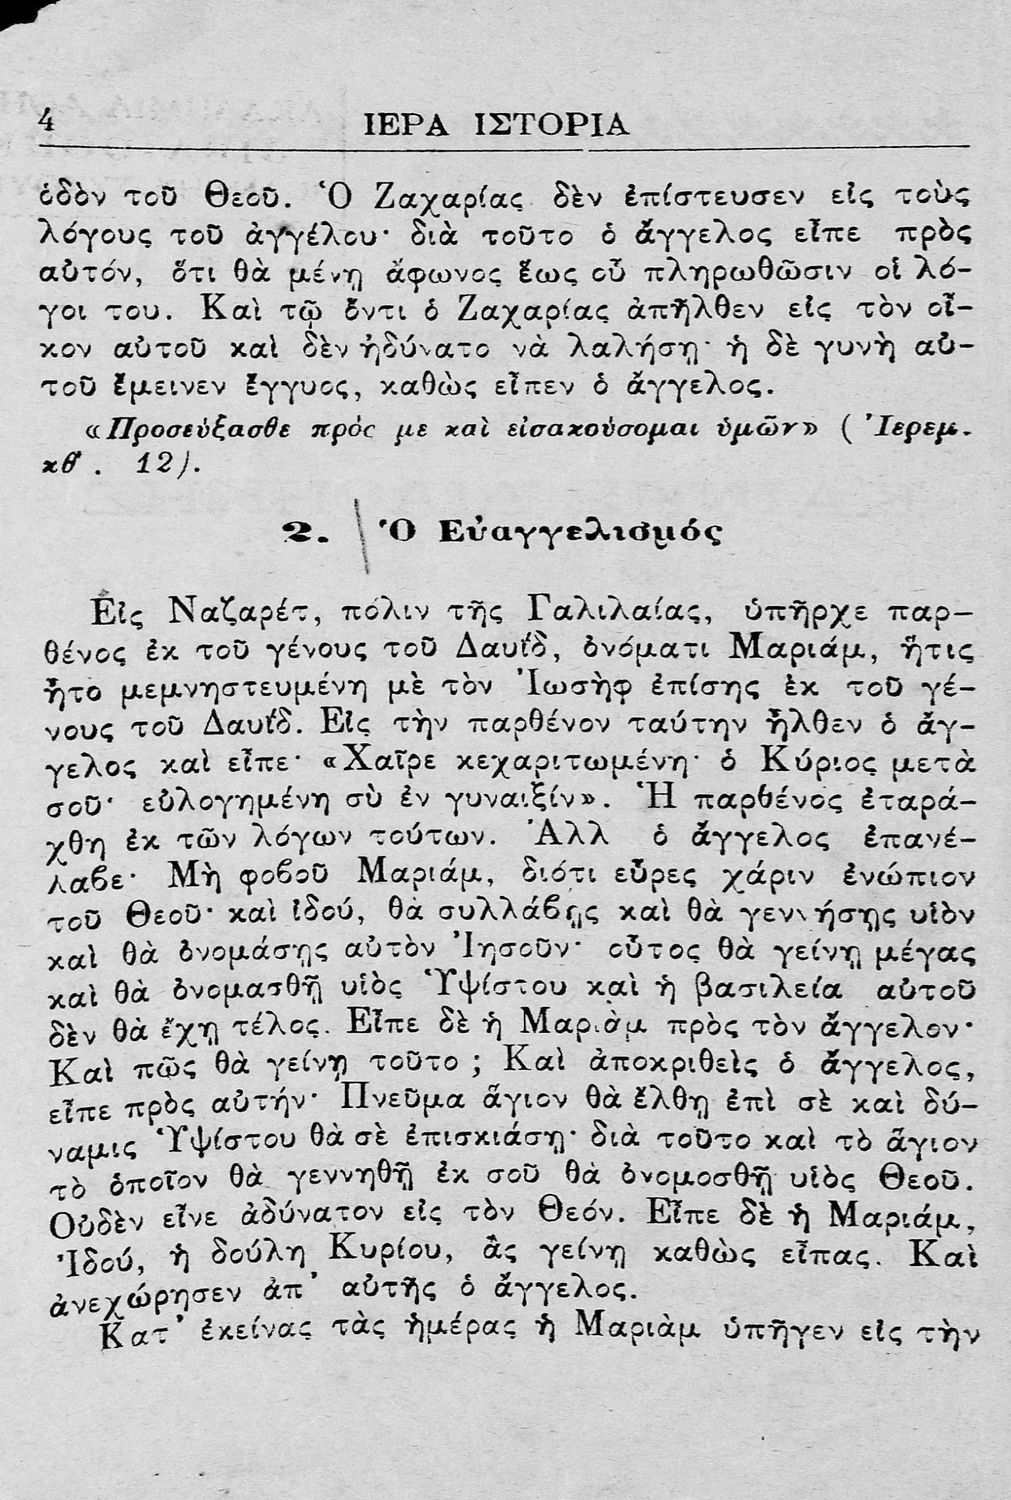 4 ΙΕΡΑ ΙΣΤΟΡΙΑ
ὁδὸν τοῦ Θεοῦ. Ὁ Ζαχαρίας δὲν ἐπίστευσεν εἰς τοὺς
λόγους τοῦ ἀγγέλου· διὰ τοῦτο ὁ ἄγγελος εἶπε πρὸς
αὐτόν, ὅτι θὰ μένῃ ἄφωνος ἕως οὗ πληρωθῶσιν οἱ λό-
γοι του. Καὶ τῷ ὄντι ὁ Ζαχαρίας ἀπῆλθεν εἰς τὸν οἶ-
κον αὐτοῦ καὶ δὲν ἠδύνατο νὰ λαλήσῃ· ἡ δὲ γυνὴ αὐ-
τοῦ ἔμεινεν ἔγγυος, καθὼς εἶπεν ὁ ἄγγελος.
«Προσεύξασθε πρὸς με καὶ εἰσακούσομαι ὑμῶν» ( Ἱερεμ.
κθ'. 12).
2. Ὁ Εὐαγγελισμός
Εἰς Ναζαρέτ, πόλιν τῆς Γαλιλαίας, ὑπῆρχε παρ-
θένος ἐκ τοῦ γένους τοῦ Δαυΐδ, ὀνόματι Μαριάμ, ἥτις
ἦτο μεμνηστευμένη μὲ τὸν Ἰωσὴφ ἐπίσης ἐκ τοῦ γέ-
νους τοῦ Δαυΐδ. Εἰς τὴν παρθένον ταύτην ἦλθεν ὁ ἄγ-
γελος καὶ εἶπε· «Χαῖρε κεχαριτωμένη· ὁ Κύριος μετὰ
σοῦ· εὐλογημένη σὺ ἐν γυναιξίν». Ἡ παρθένος ἐταρά-
χθη ἐκ τῶν λόγων τούτων. Ἀλλ ὁ ἄγγελος ἐπανέ-
λαβε· Μὴ φοβοῦ Μαριάμ, διότι εὗρες χάριν ἐνώπιον
τοῦ Θεοῦ· καὶ ἰδού, θὰ συλλάβῃς καὶ θὰ γεννήσῃς υἱὸν
καὶ θὰ ὀνομάσῃς αὐτὸν Ἰησοῦν· οὗτος θὰ γείνῃ μέγας
καὶ θὰ ὀνομασθῇ υἱὸς Ὑψίστου καὶ ἡ βασιλεία αὐτοῦ
δὲν θὰ ἔχῃ τέλος. Εἶπε δὲ ἡ Μαριὰμ πρὸς τὸν ἄγγελον·
Καὶ πῶς θὰ γείνῃ τοῦτο ; Καὶ ἀποκριθεὶς ὁ ἄγγελος,
εἶπε πρὸς αὐτήν· Πνεῦμα ἅγιον θὰ ἔλθῃ ἐπὶ σὲ καὶ δύ-
ναμις Ὑψίστου θὰ σὲ ἐπισκιάσῃ· διὰ τοῦτο καὶ τὸ ἅγιον
τὸ ὁποῖον θὰ γεννηθῇ ἐκ σοῦ θὰ ὀνομοσθῇ υἱὸς Θεοῦ.
Οὐδὲν εἶνε ἀδύνατον εἰς τὸν Θεόν. Εἶπε δὲ ἡ Μαριάμ,
Ἰδού, ἡ δούλη Κυρίου, ἂς γείνῃ καθὼς εἶπας. Καὶ
ἀνεχώρησεν ἀπ' αὐτῆς ὁ ἄγγελος.
Κατ' ἐκείνας τὰς ἡμέρας ἡ Μαριὰμ ὑπῆγεν εἰς τὴν